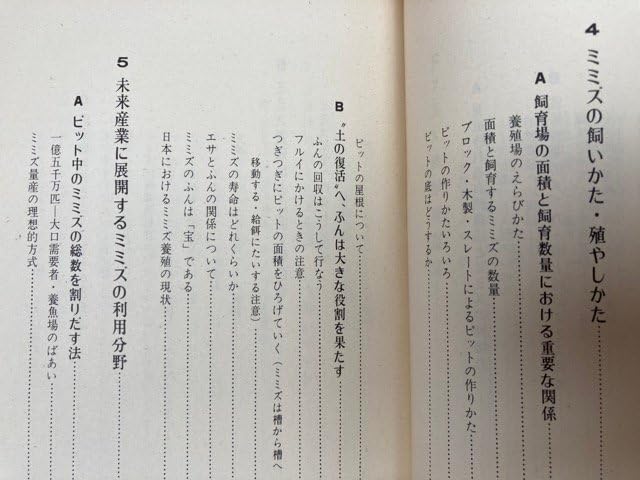 4 ミミズの飼いかた・殖やしかた
A 飼育場の面積と飼育数量における重要な関係
養殖場のえらびかた
面積と飼育するミミズの数量
ブロック・木製・スレートによるピットの作りかた
ピットの作りかたいろいろ
ピットの底はどうするか
ピットの屋根について
B 〝土の復活〟へ、ふんは大きな役割を果たす
ふんの回収はこうして行なう
フルイにかけるときの注意
つぎつぎにピットの面積をひろげていく(ミミズは槽から槽へ
移動する・給餌にたいする注意)
ミミズの寿命はどれくらいか
エサとふんの関係について
ミミズのふんは「宝」である
日本におけるミミズ養殖の現状
5 未来産業に展開するミミズの利用分野
A ピット中のミミズの総数を割りだす法
一億五千万匹—大口需要者・養魚場のばあい
ミミズ量産の理想的方式